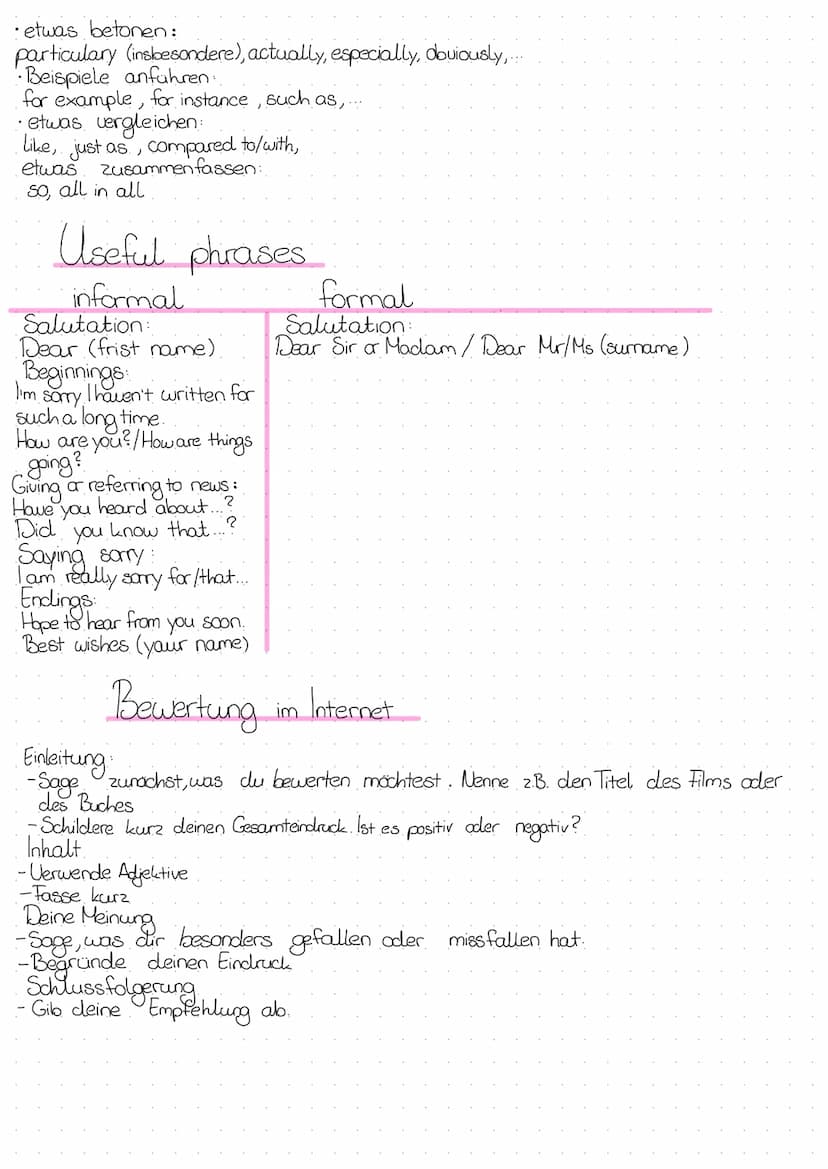 · etwas betonen:
particulary (insbesondere), actually, especially, obviously,...
· Beispiele anführen:
for example, for instance, such as,...
· etwas vergleichen:
like, just as, compared to/with,
etwas zusammenfassen:
so, all in all
Useful phrases
informal formal
Salutation:
Dear (frist name)
Beginnings:
I'm sorry I haven't written for
such a long time.
How are you?/How are things
going?
Giving or referring to news:
Have you heard about...?
Did you know that...?
Saying sorry:
I am really sorry for/that...
Endings:
Hope to hear from you soon.
Best wishes (your name)
Salutation:
Dear Sir or Madam / Dear Mr/Ms (surname)
Bewertung im Internet
Einleitung:
- Sage zunächst, was du bewerten möchtest. Nenne z.B. den Titel des Films oder
des Buches
- Schildere kurz deinen Gesamteindruck. Ist es positiv oder negativ?
Inhalt
- Verwende Adjektive
- Fasse kurz
Deine Meinung
- Sage, was dir besonders gefallen oder missfallen hat.
- Begründe deinen Eindruck
Schlussfolgerung
- Gib deine Empfehlung ab.